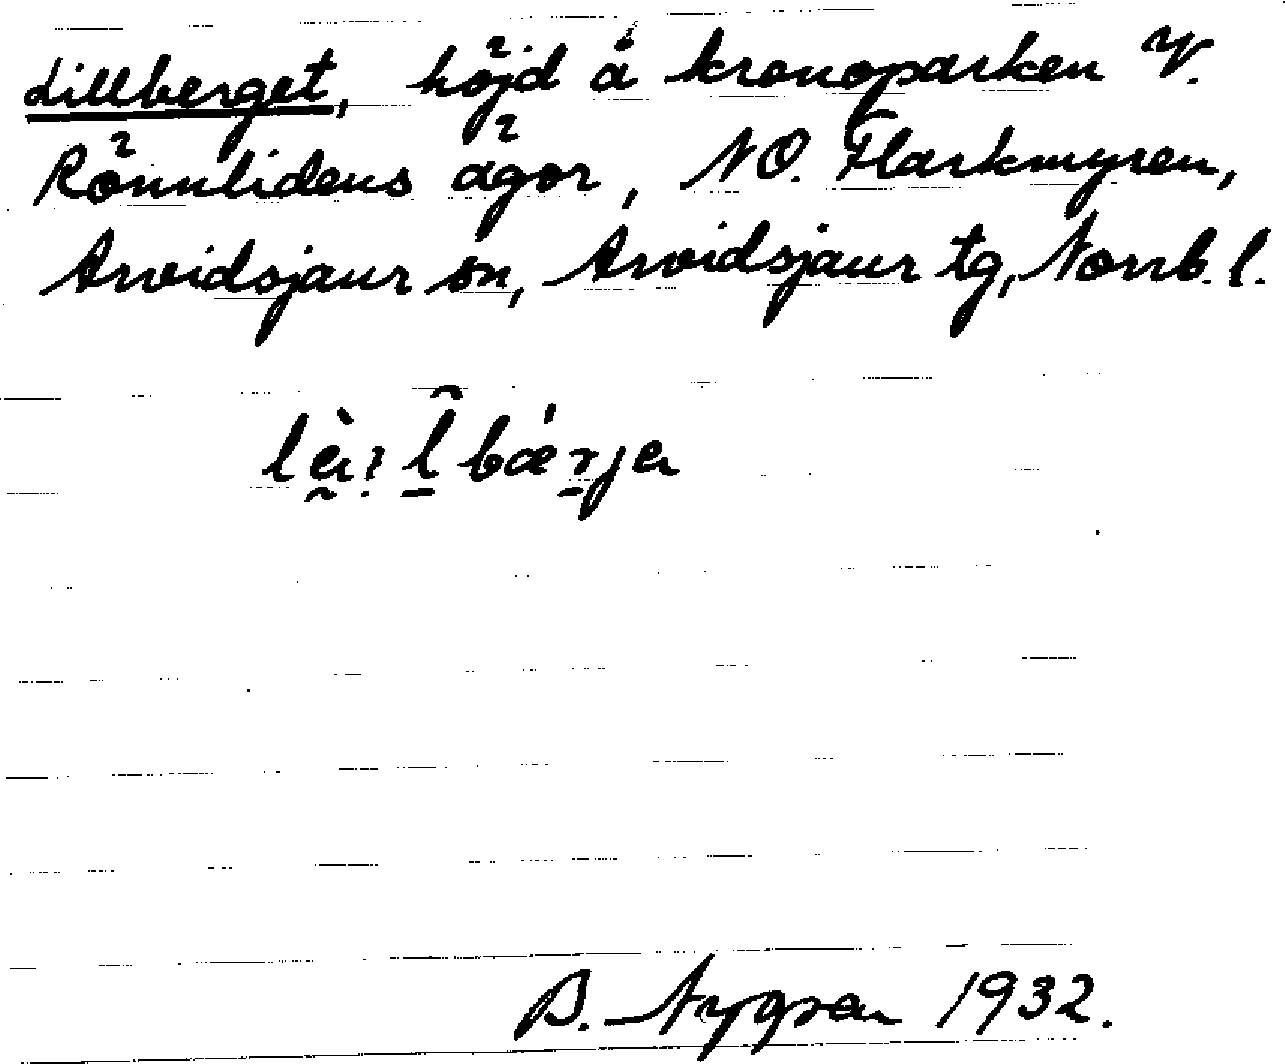 Lillberget, höjd å kronoparken V.
Rönnlidens ägor, NO. Flarkmyren,
Arvidsjaur sn, Arvidsjaur tg, Norrb. l.
B. Nygren 1932.